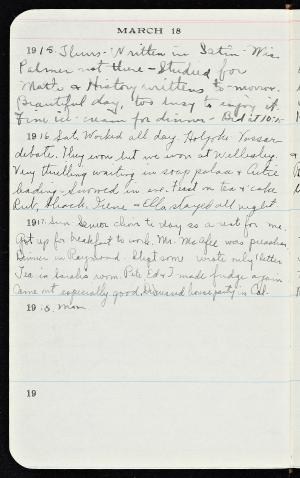 MARCH 18
1915 Thurs. - Written in Latin - Miss
Palmer not there - Studied for
Math & History writtens to-morrow.
Beautiful day, too busy to enjoy it.
ice-cream for dinner - Bed at 10:
1916. Sat. Worked all day. Holyoke-Vassar
debate. They won but we won at Wellesley.
Very thrilling waiting in soap palace &
leading. in eve. Feast on tea & cake
Rut, Irene & Ella stayed all night
1917. Sun. choir to day so a rest for me.
Got up for breakfast to work. Mr. McAfee was preacher.
Dinner in Raymond. Slept some wrote only 1 letter
Tea in room. Pete, Ed & I made fudge again
Came out especially good. Discussed house party in
1918. Mon.
19